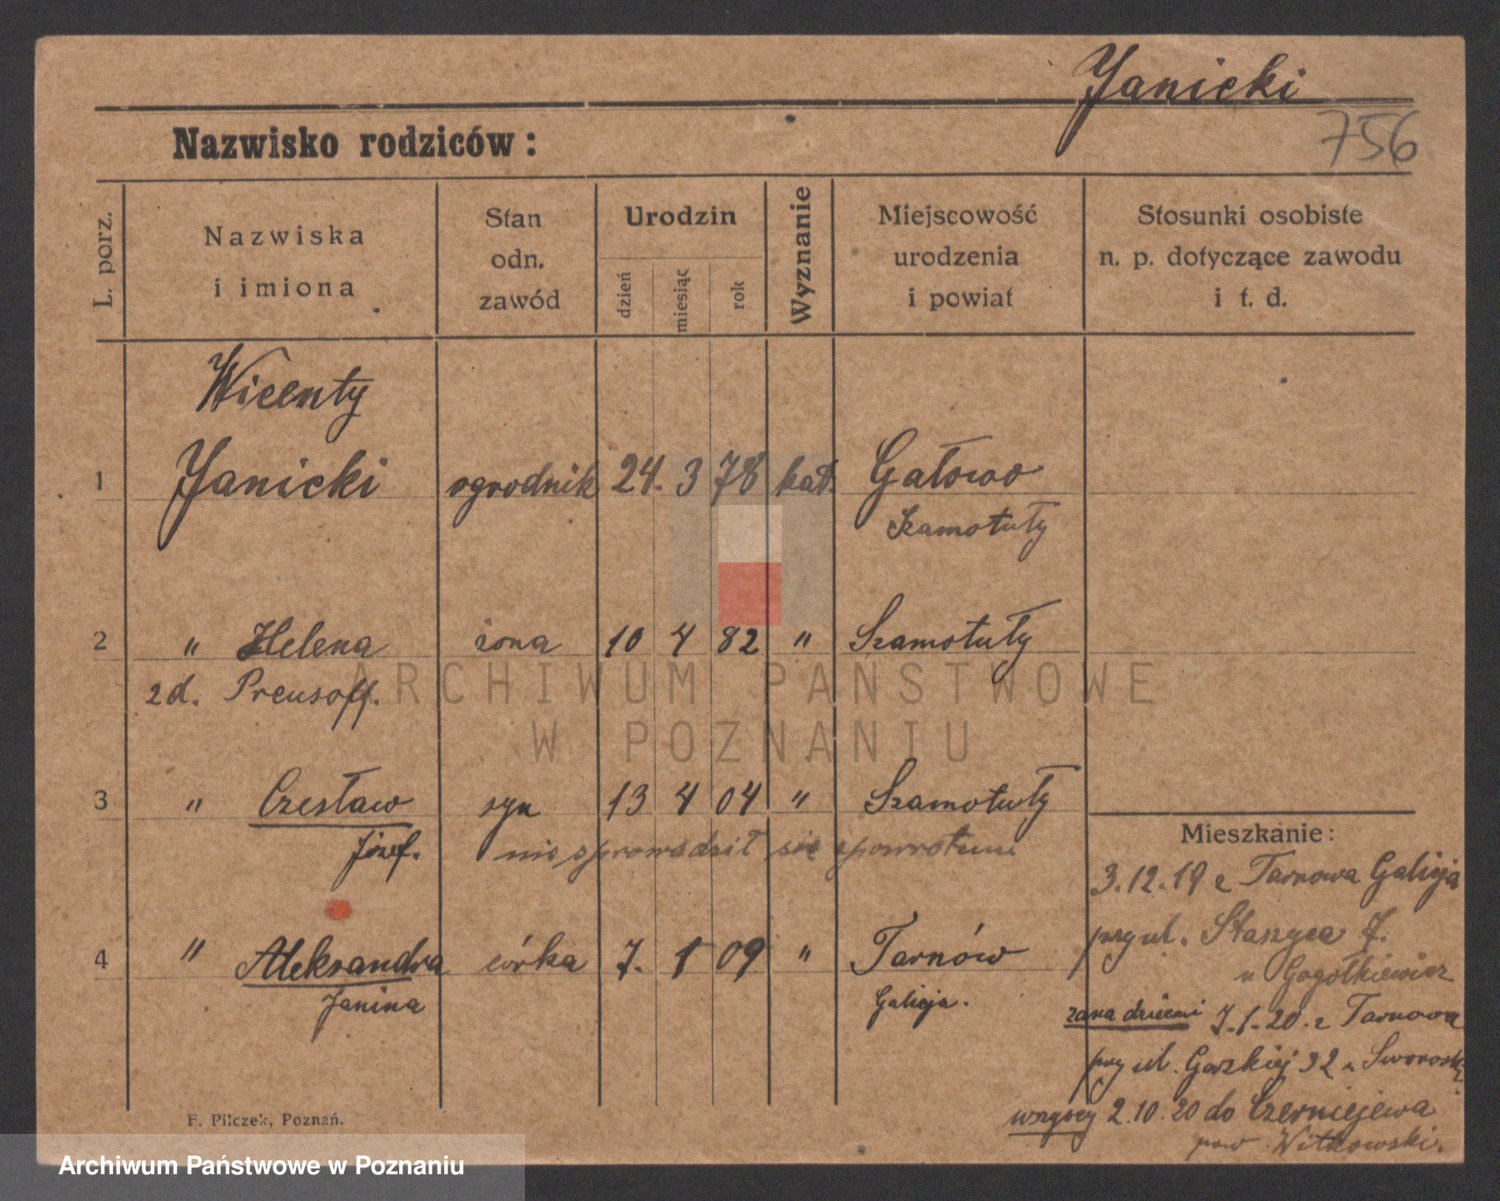 Janicki
756
Nazwisko rodziców:
L. porz.
Nazwiska
i imiona
Stan
odn.
zawód
Urodzin
dzień
miesiąc
rok
Wyznanie
Miejscowość
urodzenia
i powiat
Stosunki osobiste
n. p. dotyczące zawodu
i t. d.
Wicenty
1 Janicki ogrodnik 24. 3 78 kat. Gałowo
Szamotuły
2 " Helena żona 10 4 82 " Szamotuły
zd. Preusoff.
3 " Czesław syn 13 4 04 " Szamotuły
Józef. nie sprowadził się spowrotem
4 " Aleksandra córka 7. 1 09 " Tarnów
Janina Galicja.
Mieszkanie:
3.12.19 z Tarnowa Galicja
przy ul. Staszyca 7.
u Gogołkiewicz
żona dziećmi 7.1.20. z Tarnowa
przy ul. 32
wszyscy 2.10.20 do Czerniejewa
pow. Witkowski.
F. Pilczek, Poznań.
ARCHIWUM PAŃSTWOWE
W POZNANIU
Archiwum Państwowe w Poznaniu